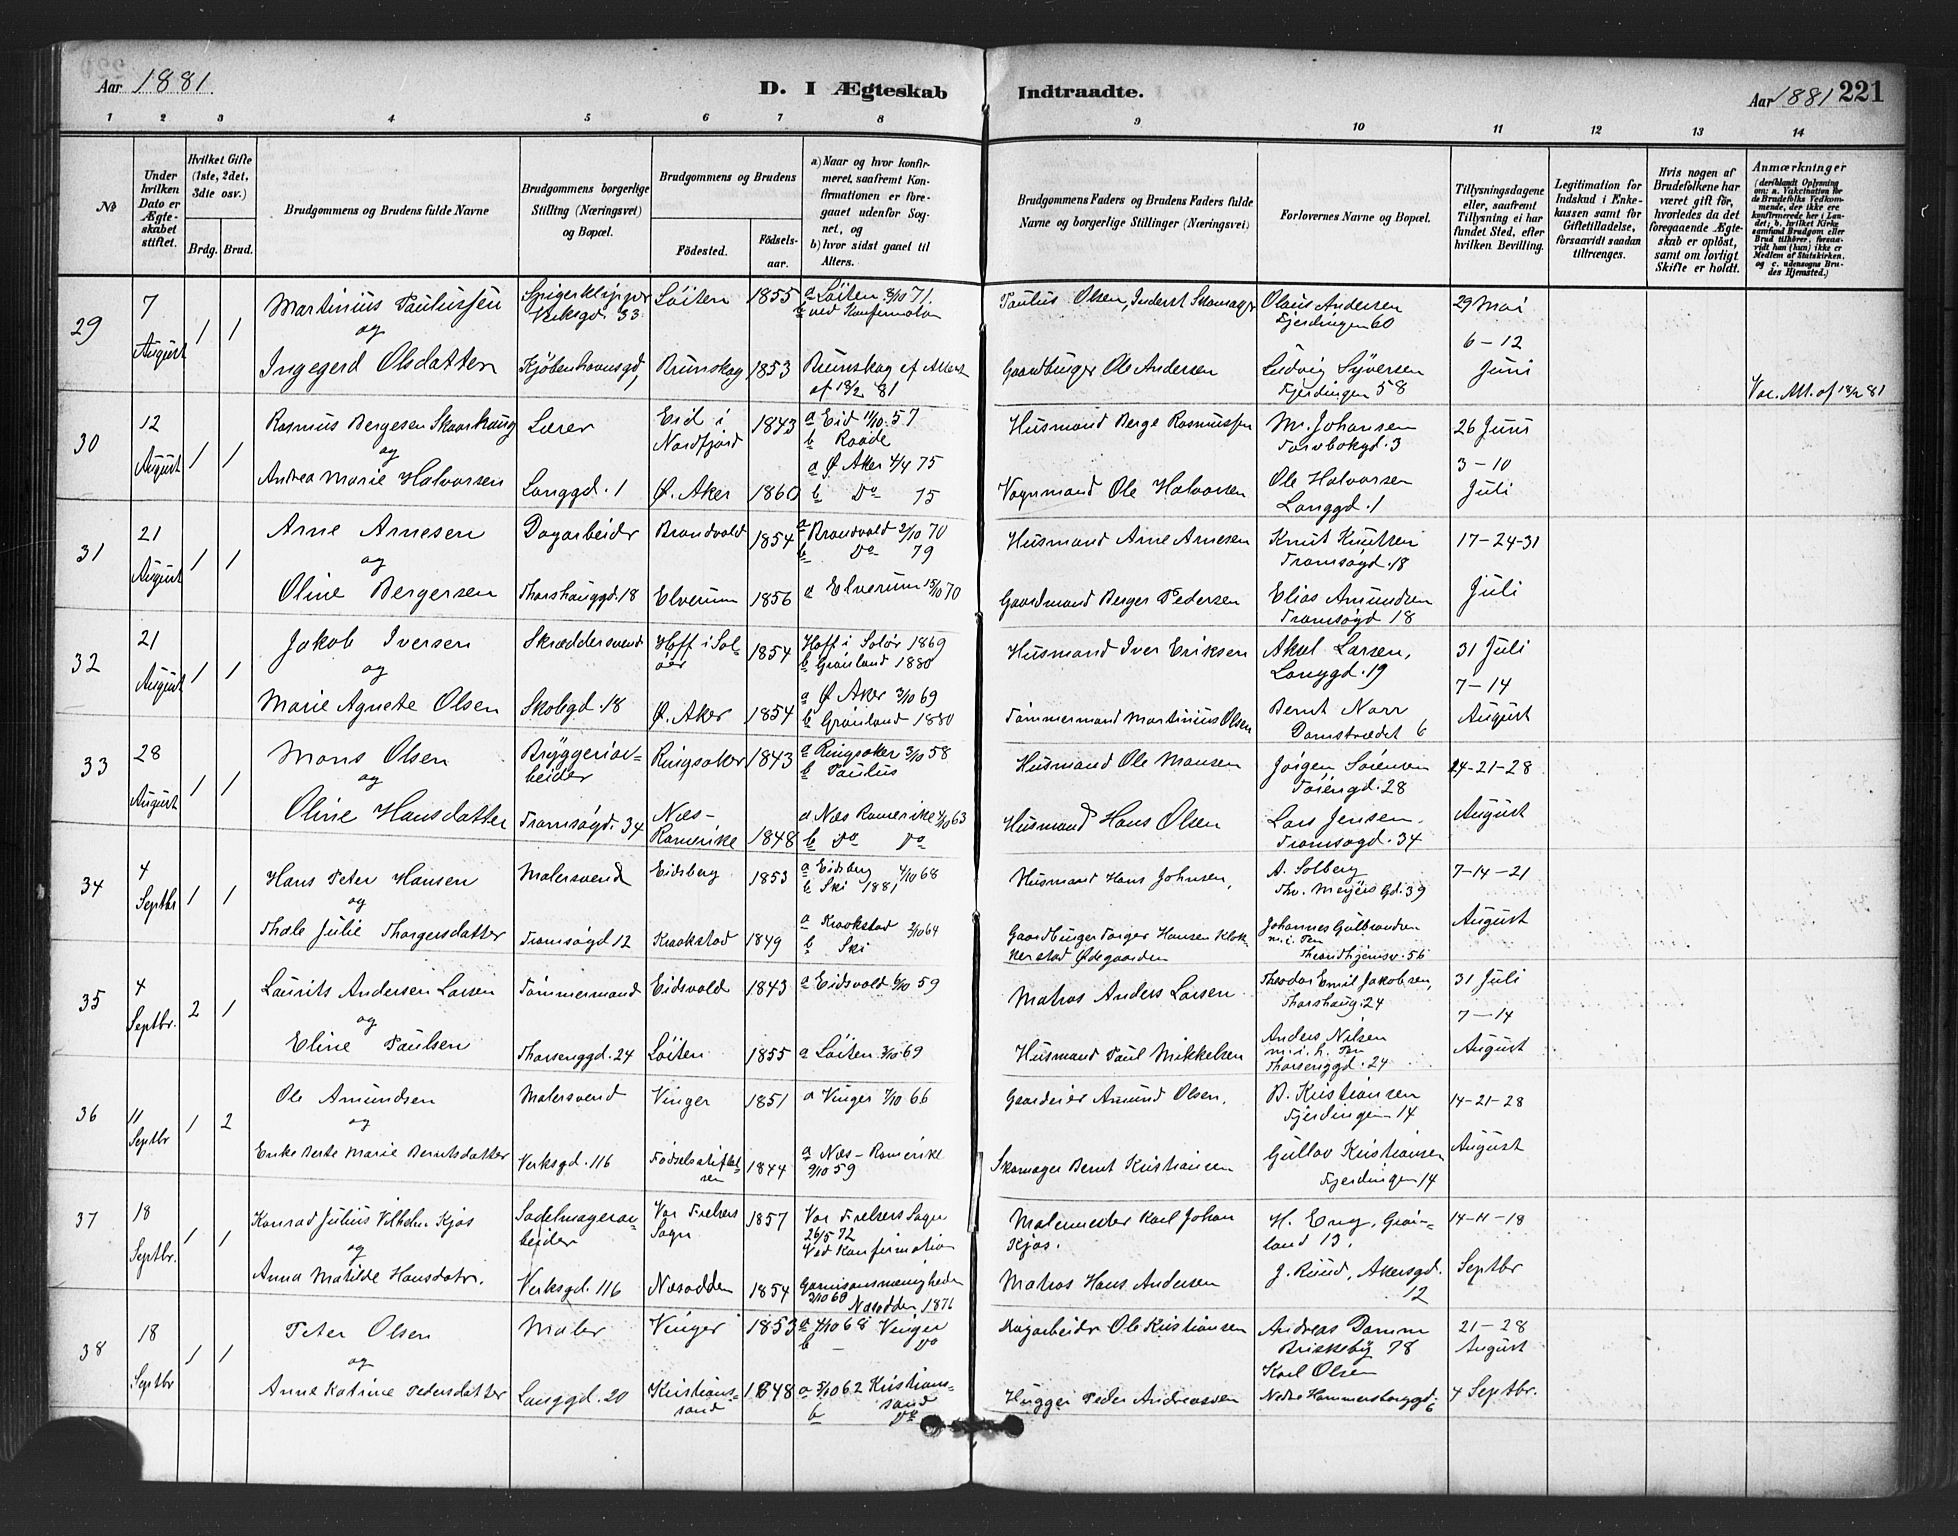 Aar 1881.
D. I Ægteskab
Indtraadte.
Aar 1881 221
1 2 3 4 5 6 7 8 9 10 11 12 13 14
No
Under hvilken Dato er Ægteskabet stiftet.
Hvilket Gifte (1ste, 2det, 3dte osv.)
Brdg. Brud.
Brudgommens og Brudens fulde Navne
Brudgommens borgerlige Stilling (Næringsvei) og Bopæl.
Brudgommens og Brudens
Fødested.
Fødselsaar.
a) Naar og hvor konfirmeret, saafremt Konfirmationen er foregaaet udenfor Sognet, og
b) hvor sidst gaaet til Alters.
Brudgommens Faders og Brudens Faders fulde Navne og borgerlige Stillinger (Næringsvei)
Forlovernes Navne og Bopæl.
Tillysningsdagene eller, saafremt Tillysning ei har fundet Sted, efter hvilken Bevilling.
Legitimation for Indskud i Enkekassen samt for Giftetilladelse, forsaavidt saadan tiltrænges.
Hvis nogen af Brudefolkene har været gift før, hvorledes da det foregaaende Ægteskab er opløst, samt om lovligt Skifte er holdt.
Anmærkninger (deriblandt Oplysning om: a. Vakcination for de Brudefolks Vedkommende, der ikke ere konfirmerede her i Landet; b. hvilket Kirkesamfund Brudgom eller Brud tilhører, forsaavidt han (hun) ikke er Medlem af Statskirken, og c. udensogns Brudes Hjemsted.)
29 7 August 1 1
Martinius Paulussen Spigerklipper Verksgd. 33 Löiten 1855 a Löiten 8/10 71. b ved Konfirmation
Paulus Olsen, Inderst Skomager Olaus Andersen Fjerdingen 60 29 Mai
og
6-12
Ingegerd Olsdatter Kjöbenhavnsgd, Brunskog 1853 Brunskog ef Attest af 18/2 81
Gaardbruger Ole Andersen Ludvig Syversen Fjerdingen 58 Juni
Vac. Att. af 18/2 81
30 12 August 1 1
Rasmus Bergesen Skaarhaug Lærer Eid i Nordfjord 1843 a Eid 11/10 57 b Raade
Husmand Berge Rasmussen M. Johansen Torvbakgd. 3 26 Juni
og
3-10
Andrea Marie Halvorsen Langgd. 1 Ø. Aker 1860 a Ø Aker 4/4 75 b Do 75
Vognmand Ole Halvorsen Ole Halvorsen Langgd. 1 Juli
31 21 August 1 1
Arne Arnesen Dagarbeider Brandvold 1854 a Brandvold 2/10 70 b Do 79
Husmand Arne Arnesen Knut Knutsen Tromsøgd. 18 17-24-31
og
Oline Bergersen Thorshauggd. 18 Elverum 1856 a Elverum 15/10 70
Gaardmand Berger Pedersen Elias Amundsen Tromsøgd 18 Juli
32 21 August 1 1
Jakob Iversen Skræddersvend Hoff i Soløer 1854 Hoff i Solör 1869 b Grönland 1880
Husmand Iver Eriksen Aksel Larsen, Langgd. 19 31 Juli
og
7-14
Marie Agnete Olsen Skolegd. 18 Ø. Aker 1854 a Ø Aker 3/10 69 b Grönland 1880
Tömmermand Martinius Olsen Bernt Narr Damstrædet 6 August
33 28 August 1 1
Mons Olsen Bryggeriarbeider Ringsaker 1843 a Ringsaker 3/10 58 b Paulus
Husmand Ole Monsen Jörgen Sörensen Töiengd. 28 14-21-28
og
Oline Hansdatter Tromsøgd. 34 Næs-Romerike 1848 a Næs Romerike 4/10 63 b Do Do
Husmand Hans Olsen Lars Jensen. Tromsøgd. 34 August
34 4 Septbr 1 1
Hans Peter Hansen Malersvend Eidsberg 1853 a Eidsberg 4/10 68 b Ski 1881
Husmand Hans Johnsen, A. Solberg Thv. Meyers Gd. 39 7-14-21
og
Thale Julie Thorgersdatter Tromsøgd 12 Kraakstad 1849 a Kraakstad 2/10 64 b Ski
Gaardbruger Torger Hansen Klokkerstad Ødegaarden Johannes Gulbrandsen m. i. Pen Throndhjemsv. 56 August
35 4 Septbr. 2 1
Laurits Andersen Larsen Tömmermand Eidsvold 1843 a Eidsvold 6/10 59
Matros Anders Larsen Theodor Emil Jakobsen, Thorshaug. 24 31 Juli
og
7-14
Eline Paulsen Thorsenggd. 24 Löiten 1855 a Löiten 3/10 69
Husmand Paul Mikkelsen Anders Nilsen m. i. h. Pen Thorsenggd. 24 August
36 11 Septbr 1 2
Ole Amundsen Malersvend Vinger 1851 a Vinger 7/10 66
Gaardeier Amund Olsen, B. Kristiansen Fjerdingen 14 14-21-28
og
Enke Berte Marie Berntsdatter Verksgd. 116 Födselsstiftelsen 1844 a Næs-Romerike 9/10 59
Skomager Bernt Kristiansen Gullov Kristiansen Fjerdingen 14 August
37 18 Septbr. 1 1
Konrad Julius Vilhelm Kjos Sadelmagerarbeider Vor Frelsers Sogn 1857 Vor Frelsers Sogn 26/5 72 Ved Konfirmation
Malermester Karl Johan Kjos. H. Eng, Grönland 13. 14-11-18
og
Anna Matilde Hansdatr. Verksgd. 116 Næsodden 1854 Garnisonsmenigheden 3/10 68 Næsodden 1876
Matros Hans Andersen J. Ruud, Akersgd. 12 Septbr
38 18 Septbr 1 1
Peter Olsen Maler Vinger 1853 a 4/10 68 Vinger b - Do
Dagarbeider Ole Kristiansen Andreas Damm Briskeby 78 21-28 August
og
Anne Katrine Pedersdatter Langgd. 20 Kristianssand 1848 a 5/10 62 Kristianssand b Do
Hugger Peder Andreassen Karl Olsen Nedre Hammersborggd. 6 4 Septbr.